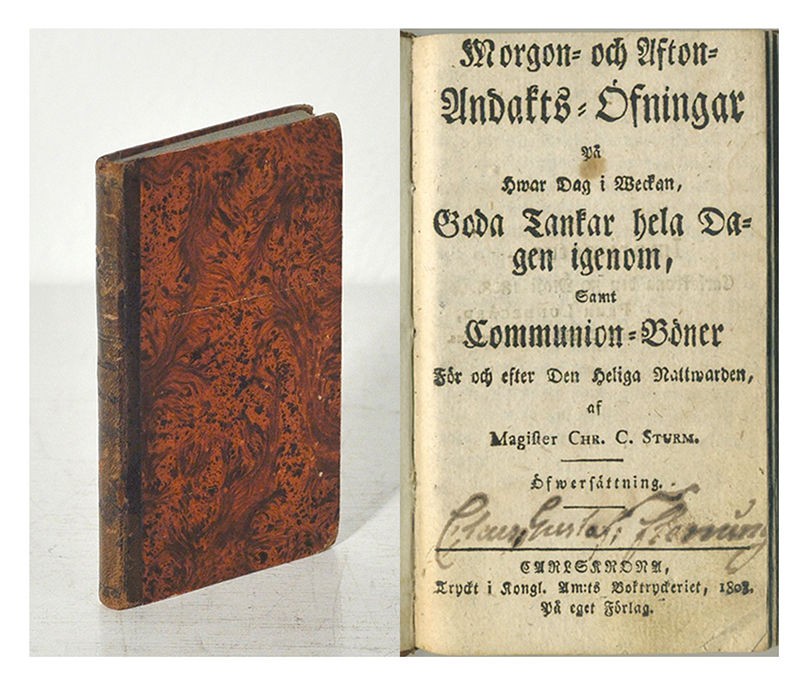 Morgon- och Afton-
Andakts-Öfningar
På
Hwar Dag i Weckan,
Goda Tankar hela Da-
gen igenom,
Samt
Communion-Böner
För och efter Den Heliga Nattwarden,
af
Magister CHR. C. STURM.
Öfwersättning.
Claes Gustaf
CARLSKRONA,
Tryckt i Kongl. Am:ts Boktryckeriet, 1808.
På eget Förlag.